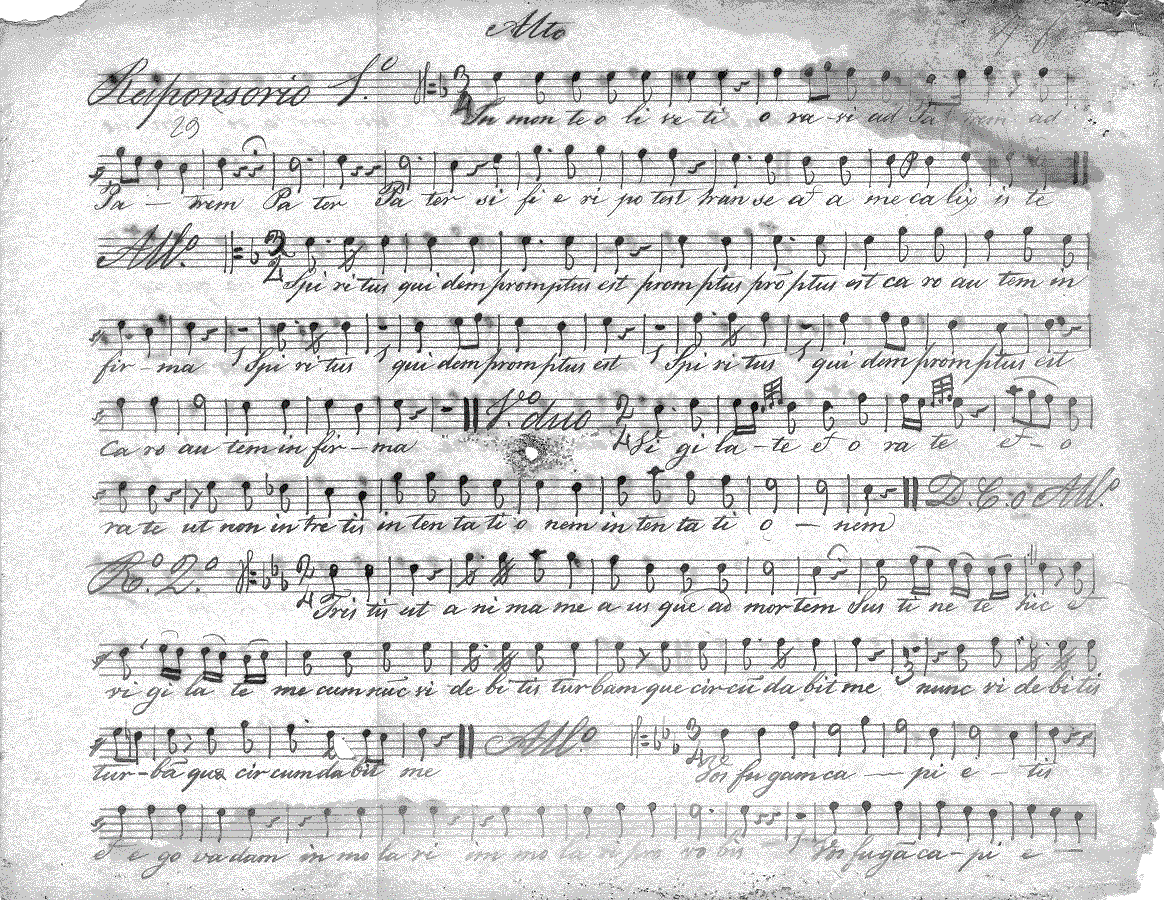 Alto
Responsorio 1.º
29
In mon te o li ve ti o ra-vi ad Pa trem ad
Pa — trem Pa ter Pa ter si fi e ri po test tran se at a me ca lix is te
All.º 2 4
Spi ri tus qui dem promptus est prom ptus prō ptus est ca ro au tem in
fir-ma 1 Spi ri tus 1 qui dem prom ptus est 1 Spi ri tus 1 qui dem prom ptus est
V.º duo 2 4
ca ro au tem in fir-ma Vi gi la-te et o ra te et - o
D. C. o All.º
ra te ut non in tre tis in ten ta ti o nem in ten ta ti o — nem
R.º 2.º 2 4
Tris tis est a ni ma me a us que ad mor tem Sus ti ne te hic et
vi gi la te me cum nūc vi de bi tis tur bam que circū da bit me nunc vi de bi tis
All.º 3 4
tur-bā que cir cum da bit me Vos fu gam ca — pi e - tis
Et e go va dam im mo la ri im mo la ri pro vo bis 1 Vos fu gā ca-pi e —